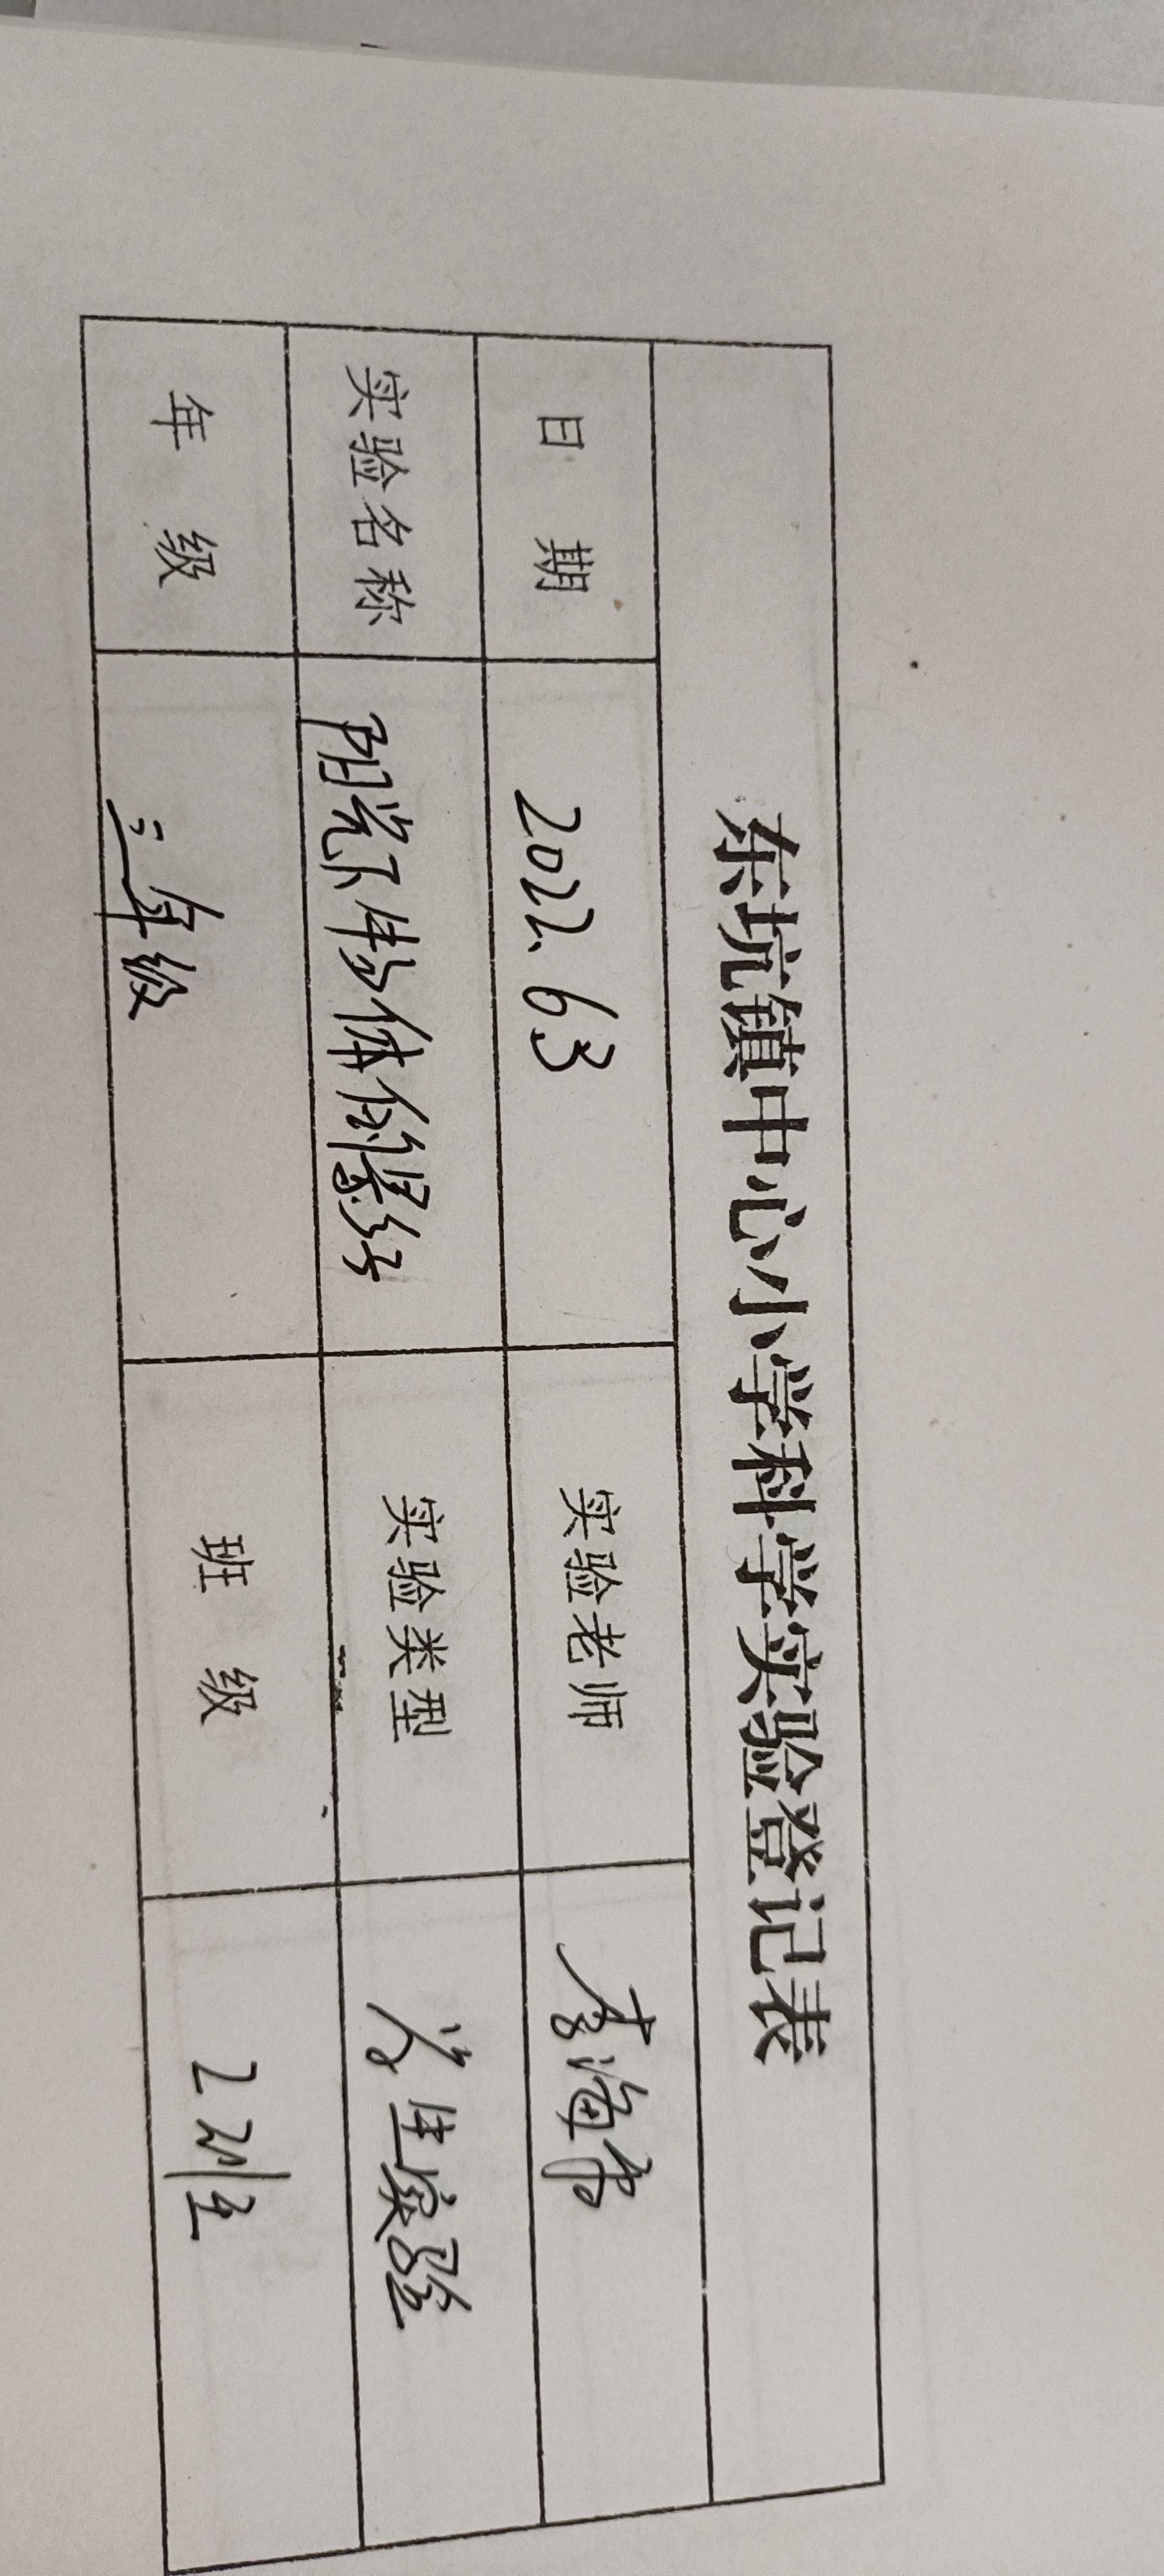 东坑镇中心小学科学实验登记表
日 期 2022.6.3 实验老师 李海常
实验名称 阳光下物体的影子 实验类型 学生实验
年 级 三年级 班 级 2班